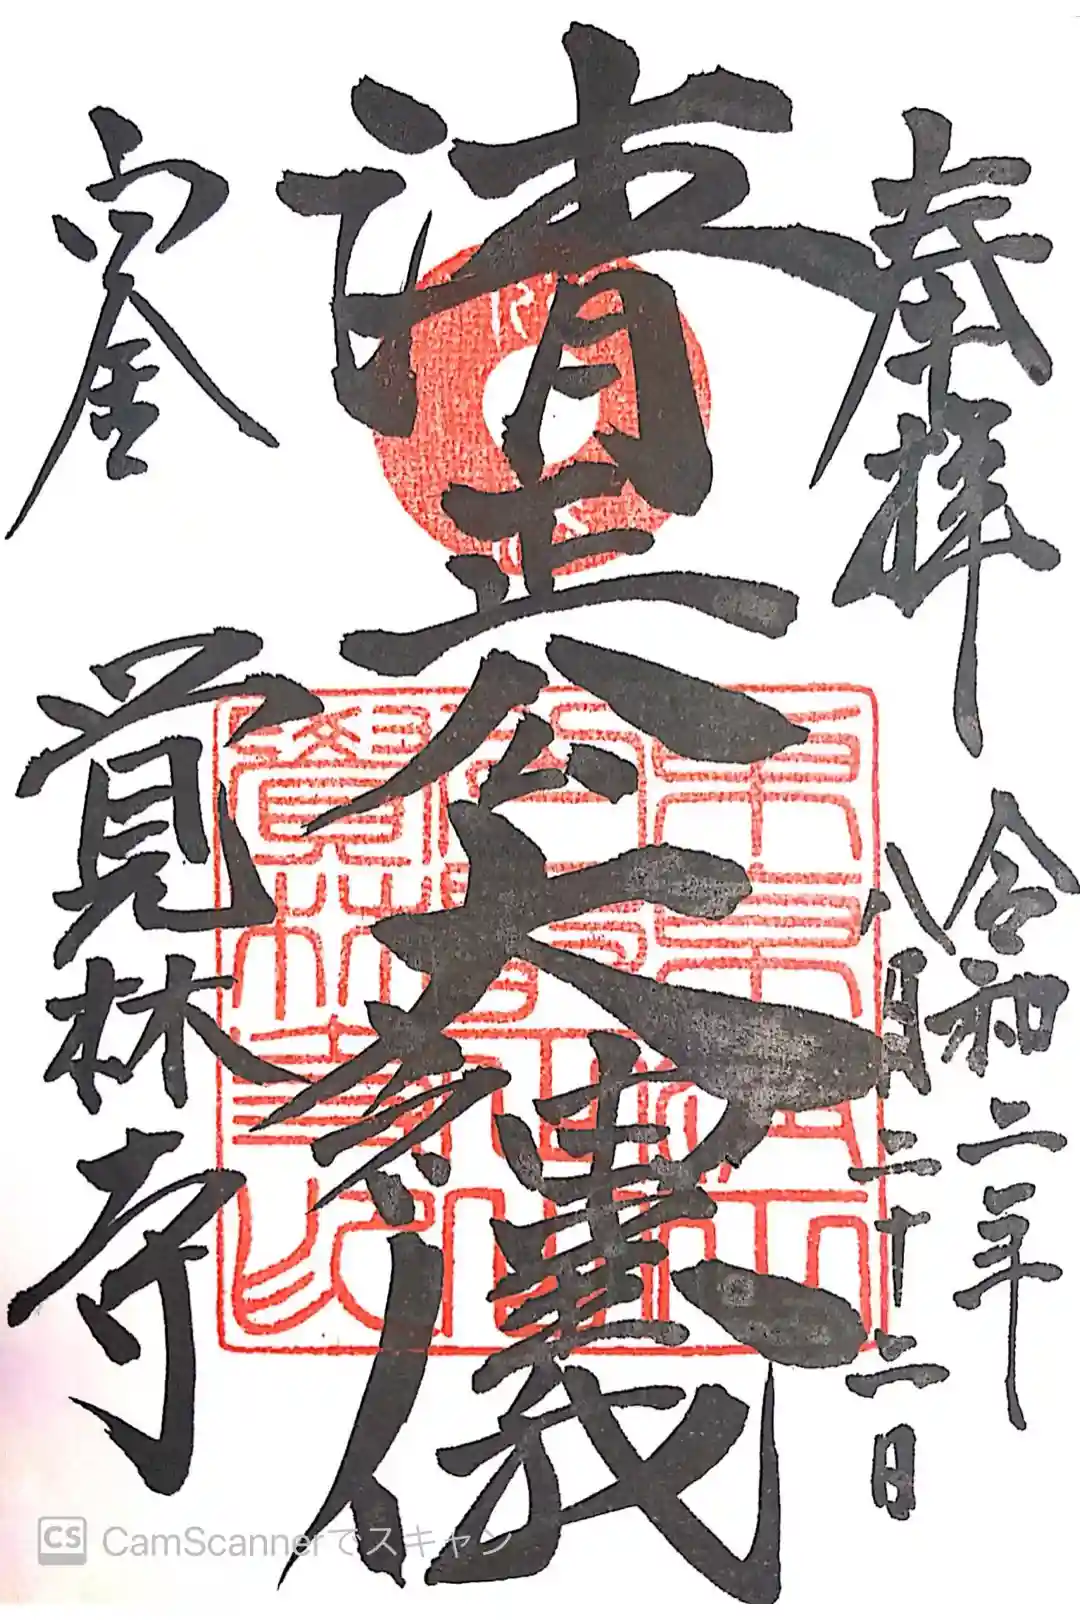 奉拝
令和二年
八月二十二日
清正公大神儀
白金
覚林寺
CS CamScannerでスキャン